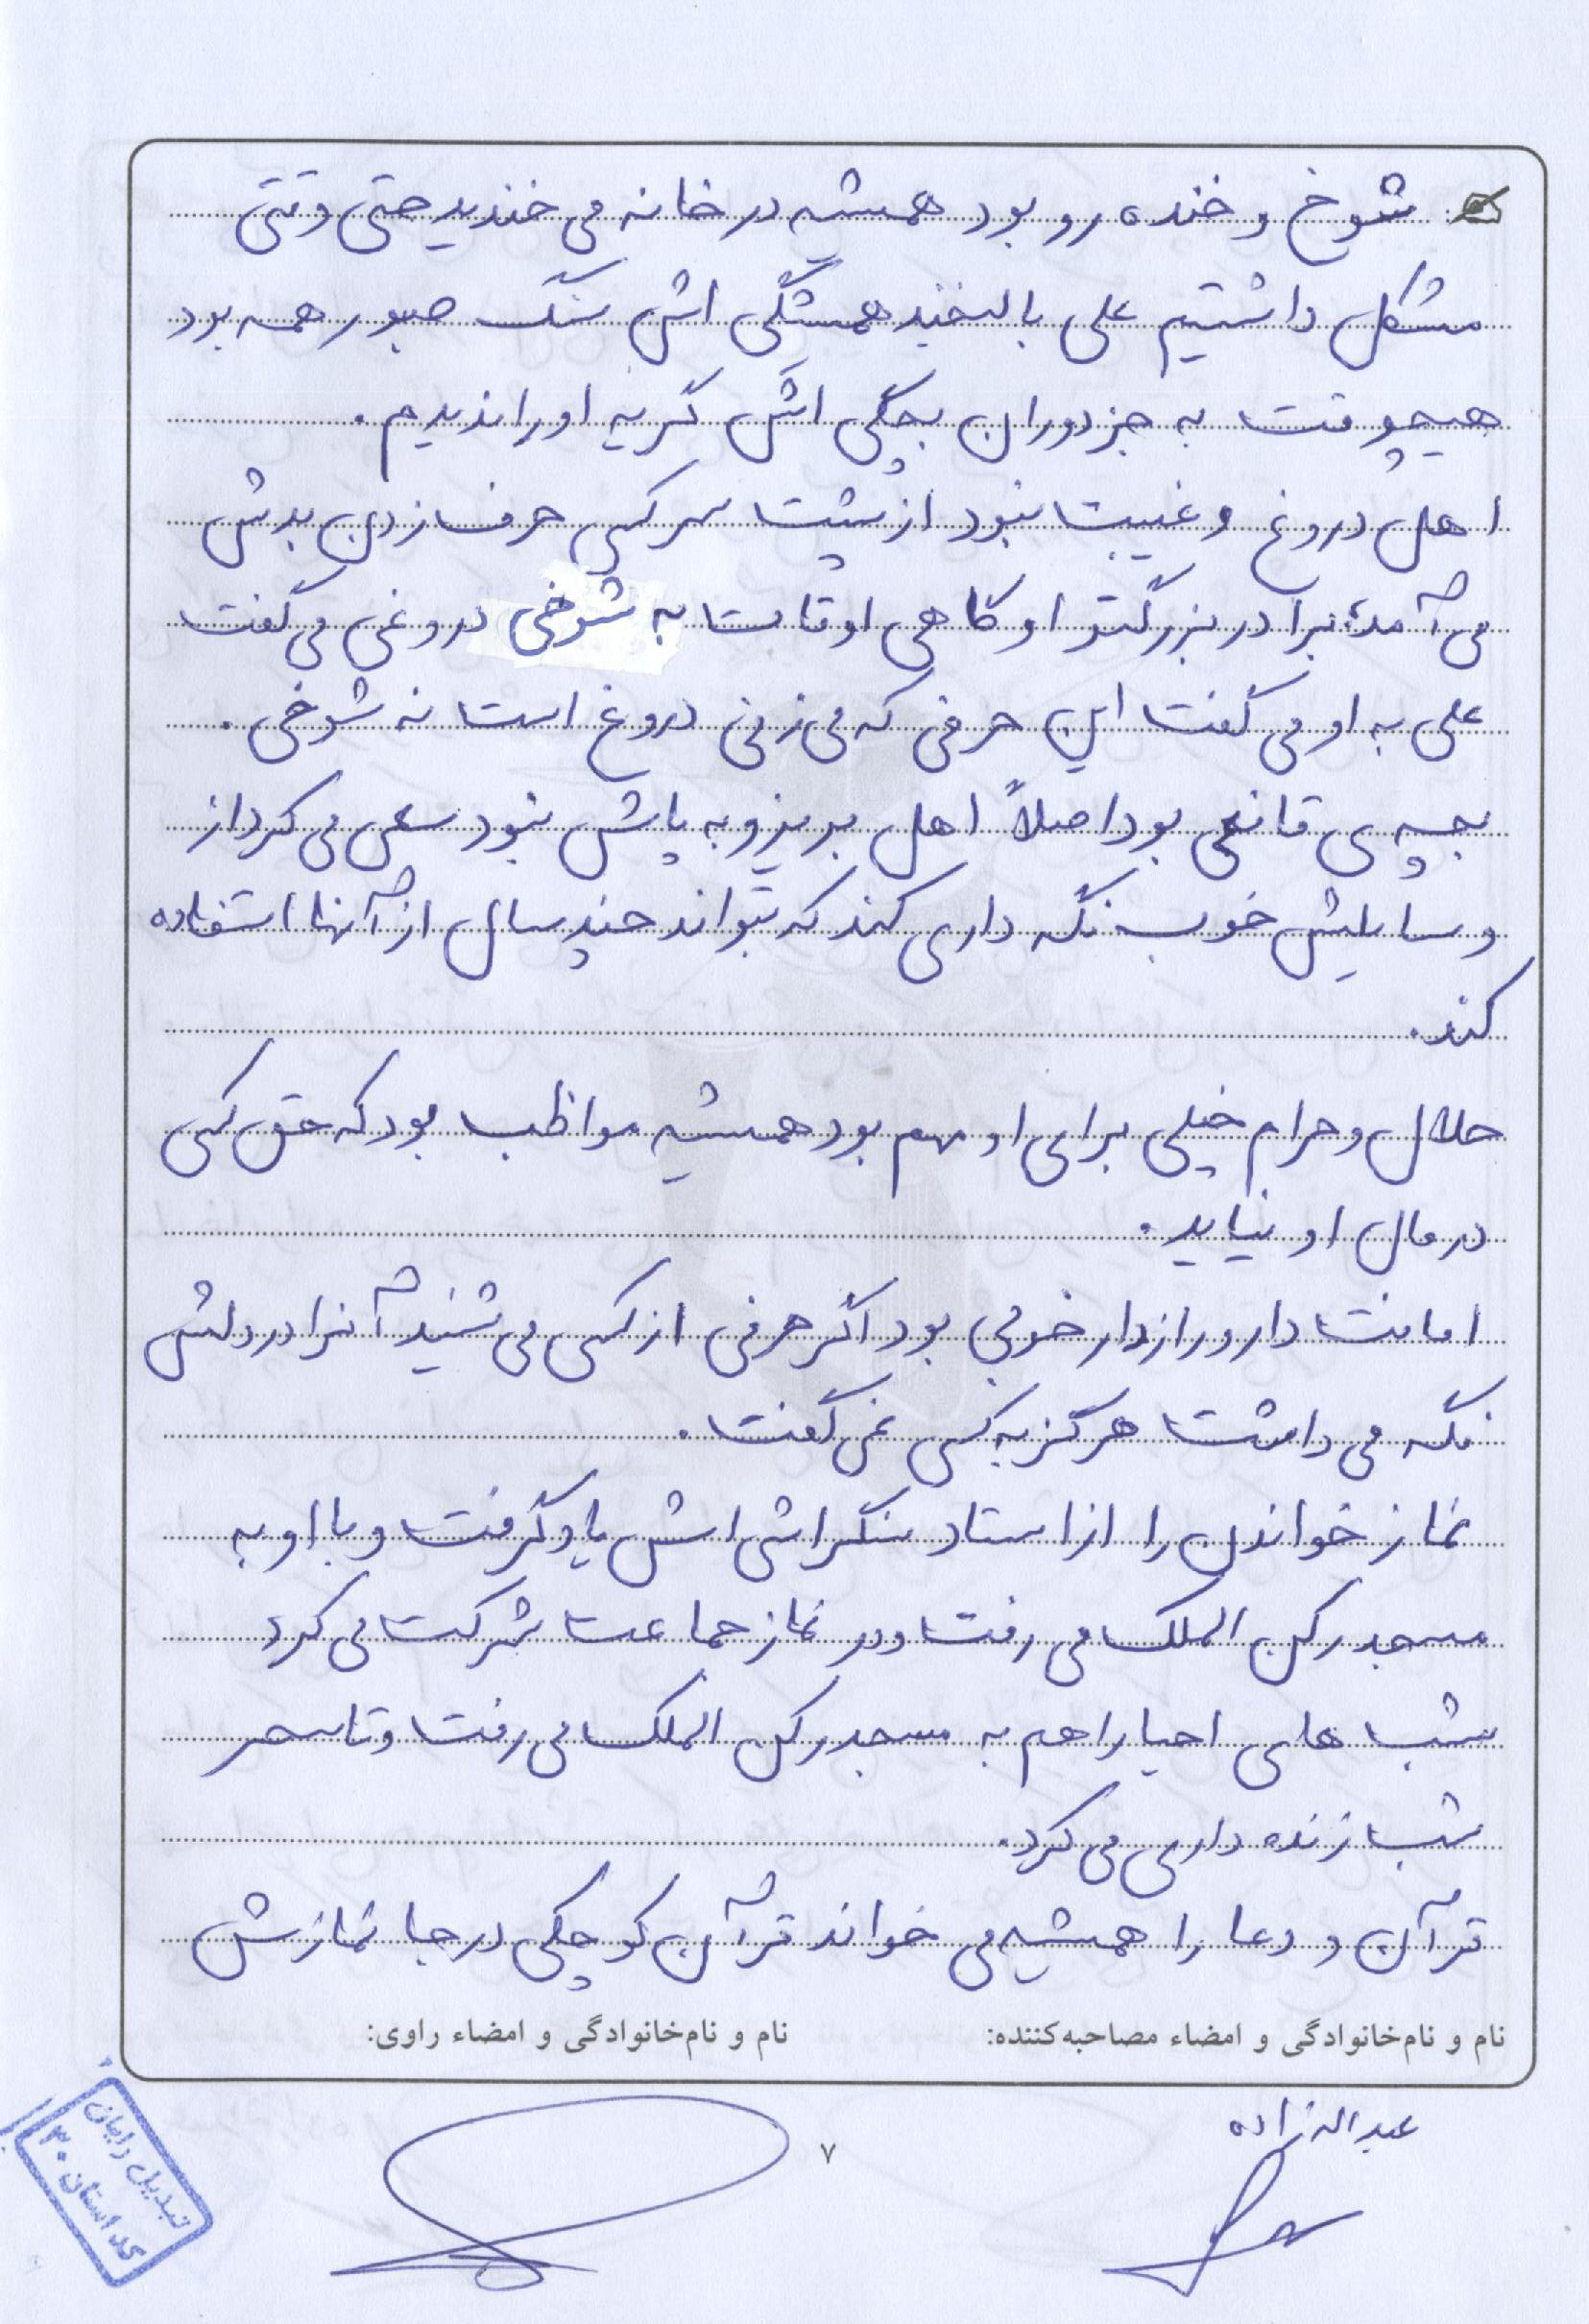 شوخ و خنده رو بود همیشه در خانه می خندید حتی وقتی
مشکل داشتیم علی با لبخند همیشگی اش سنگ صبور همه بود
هیچوقت به جز دوران بچگی اش گریه او را ندیدم.
اهل دروغ و غیبت نبود از پشت سر کسی حرف زدن بدش
می آمد، برادر بزرگتر او گاهی اوقات به شوخی دروغی می گفت
علی به او می گفت این حرفی که می زنی دروغ است نه شوخی.
بچه ی قانعی بود اصلاً اهل بریز و به پاش نبود سعی می کرد از
وسایلش خوب نگه داری کند که بتواند چند سال از آنها استفاده
کند.
حلال و حرام خیلی برای او مهم بود همیشه مواظب بود که حق کسی
در مال او نیاید.
امانت دار و رازدار خوبی بود اگر حرفی از کسی می شنید آنرا در دلش
نگه می داشت هرگز به کسی نمی گفت.
نماز خواندن را از استاد سنگتراشی اش یاد گرفت و با او به
مسجد رکن الملک می رفت و در نماز جماعت شرکت می کرد
شب های احیا را هم به مسجد رکن الملک می رفت و تا سحر
شب زنده داری می کرد.
قرآن و دعا را همیشه می خواند قرآن کوچکی در جانمازش
نام و نام‌خانوادگی و امضاء مصاحبه‌کننده: نام و نام‌خانوادگی و امضاء راوی:
عبداله زاده
۷
تبدیل رایان
کد استان ۳۰